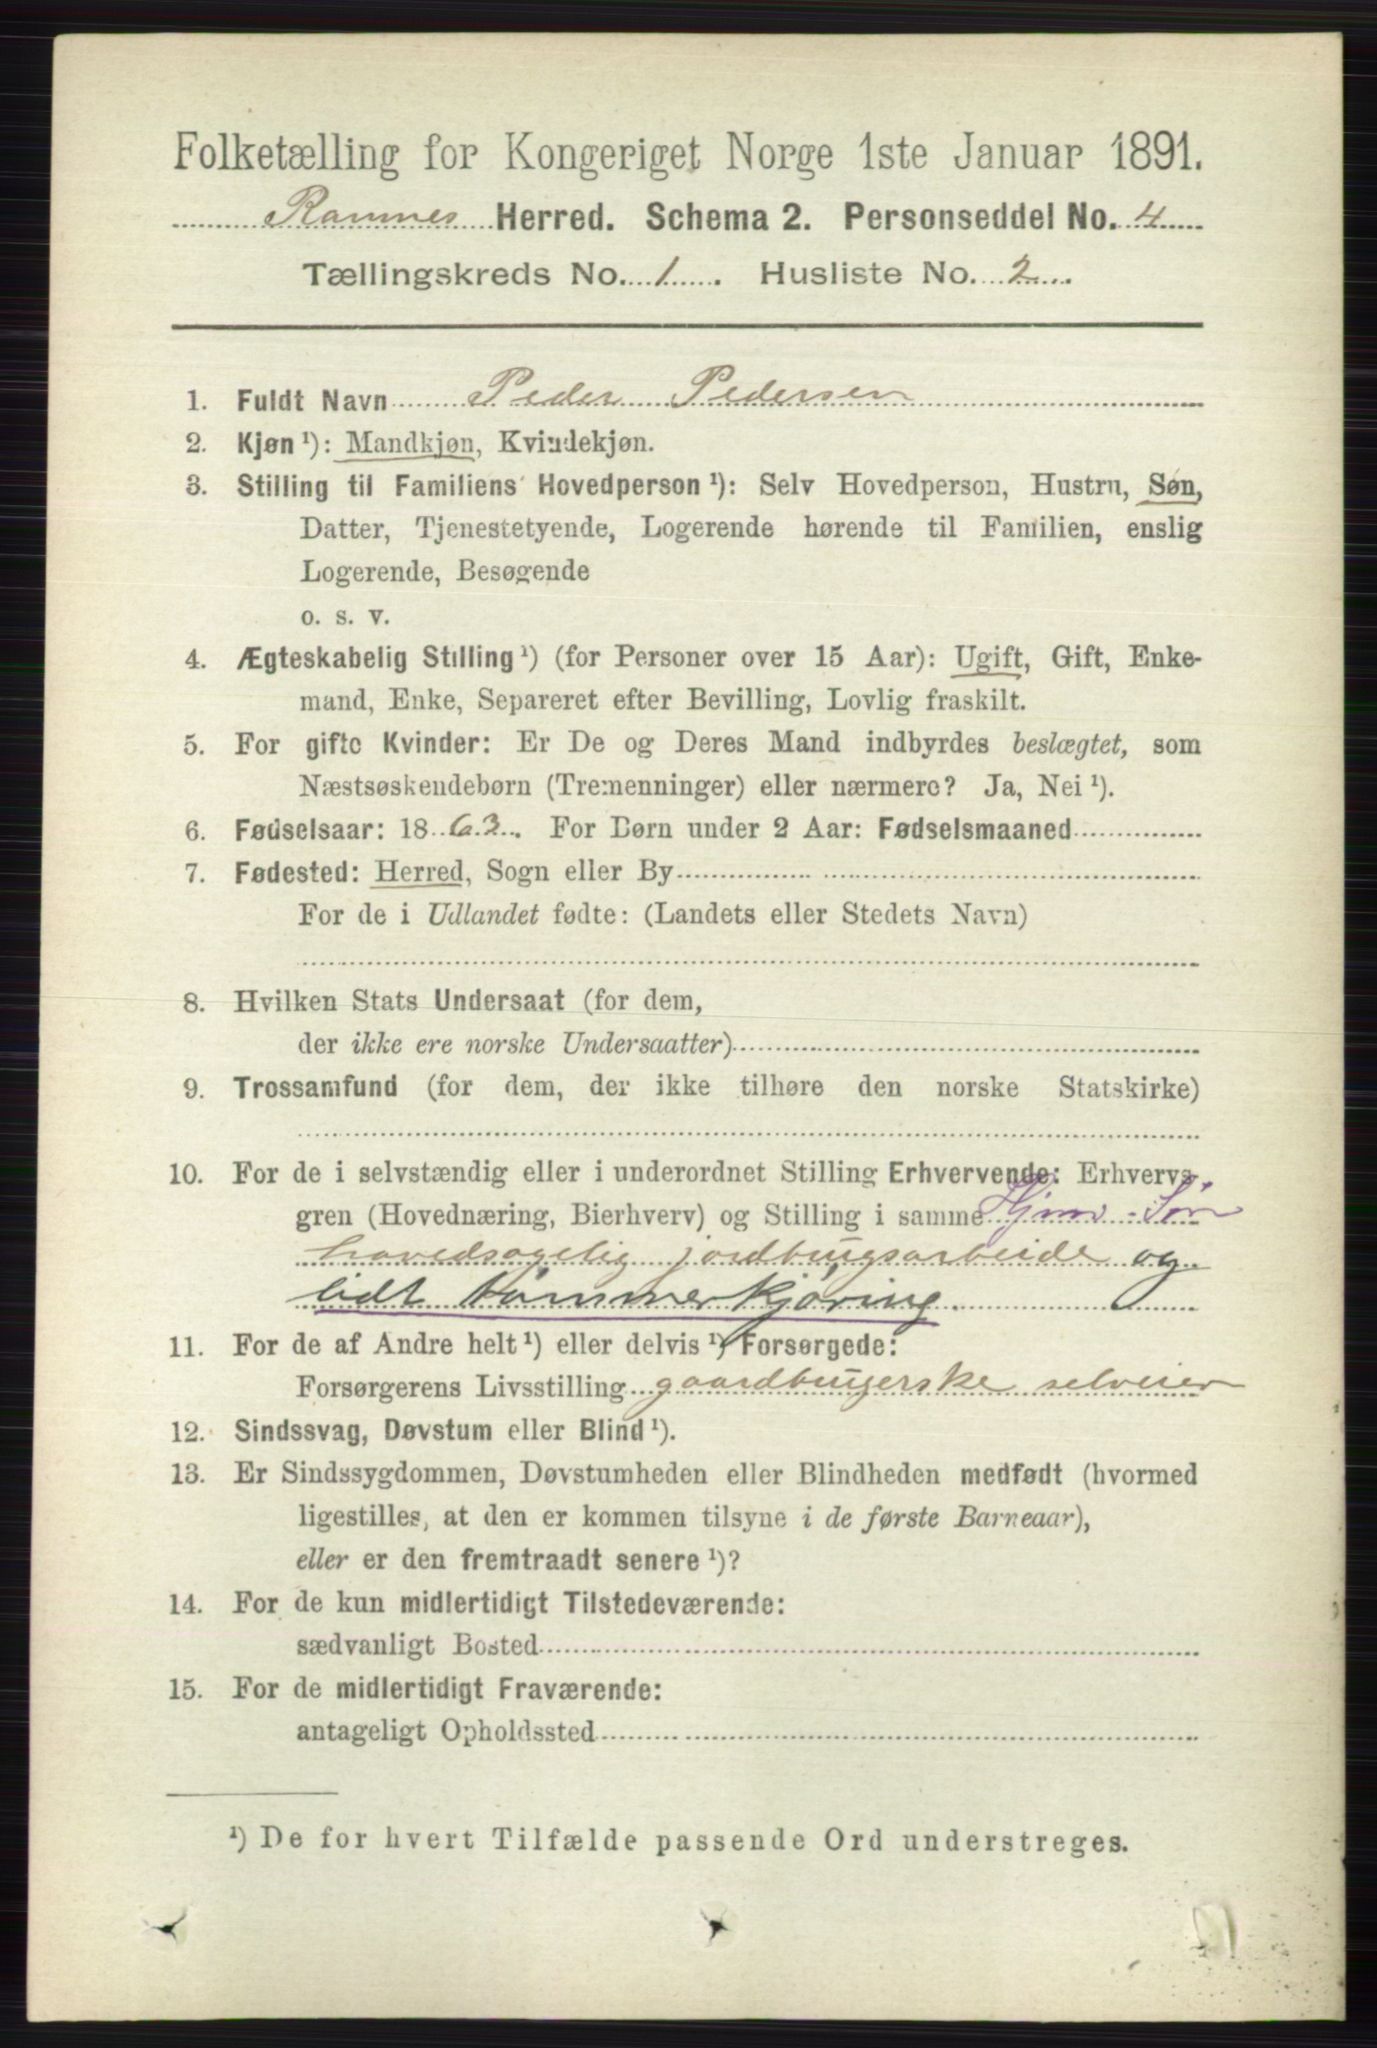 Folketælling for Kongeriget Norge 1ste Januar 1891.
Ramnes Herred. Schema 2. Personseddel No. 4
Tællingskreds No. 1. Husliste No. 2.
1. Fuldt Navn Peder Pedersen
2. Kjøn ¹): Mandkjøn, Kvindekjøn.
3. Stilling til Familiens Hovedperson ¹): Selv Hovedperson, Hustru, Søn,
Datter, Tjenestetyende, Logerende hørende til Familien, enslig
Logerende, Besøgende
o. s. v.
4. Ægteskabelig Stilling ¹) (for Personer over 15 Aar): Ugift, Gift, Enke-
mand, Enke, Separeret efter Bevilling, Lovlig fraskilt.
5. For gifte Kvinder: Er De og Deres Mand indbyrdes beslægtet, som
Næstsøskendebørn (Tremenninger) eller nærmere? Ja, Nei ¹).
6. Fødselsaar: 1863. For Børn under 2 Aar: Fødselsmaaned
7. Fødested: Herred, Sogn eller By
For de i Udlandet fødte: (Landets eller Stedets Navn)
8. Hvilken Stats Undersaat (for dem,
der ikke ere norske Undersaatter)
9. Trossamfund (for dem, der ikke tilhøre den norske Statskirke)
10. For de i selvstændig eller i underordnet Stilling Erhvervende: Erhvervs-
gren (Hovednæring, Bierhverv) og Stilling i samme Hjmv. Søn
hovedsagelig jordbrugsarbeide og
lidt tømmerkjøring
11. For de af Andre helt ¹) eller delvis ¹) Forsørgede:
Forsørgerens Livsstilling gaardbrugerske selveier
12. Sindssvag, Døvstum eller Blind ¹).
13. Er Sindssygdommen, Døvstumheden eller Blindheden medfødt (hvormed
ligestilles, at den er kommen tilsyne i de første Barneaar),
eller er den fremtraadt senere ¹)?
14. For de kun midlertidigt Tilstedeværende:
sædvanligt Bosted
15. For de midlertidigt Fraværende:
antageligt Opholdssted
¹) De for hvert Tilfælde passende Ord understreges.